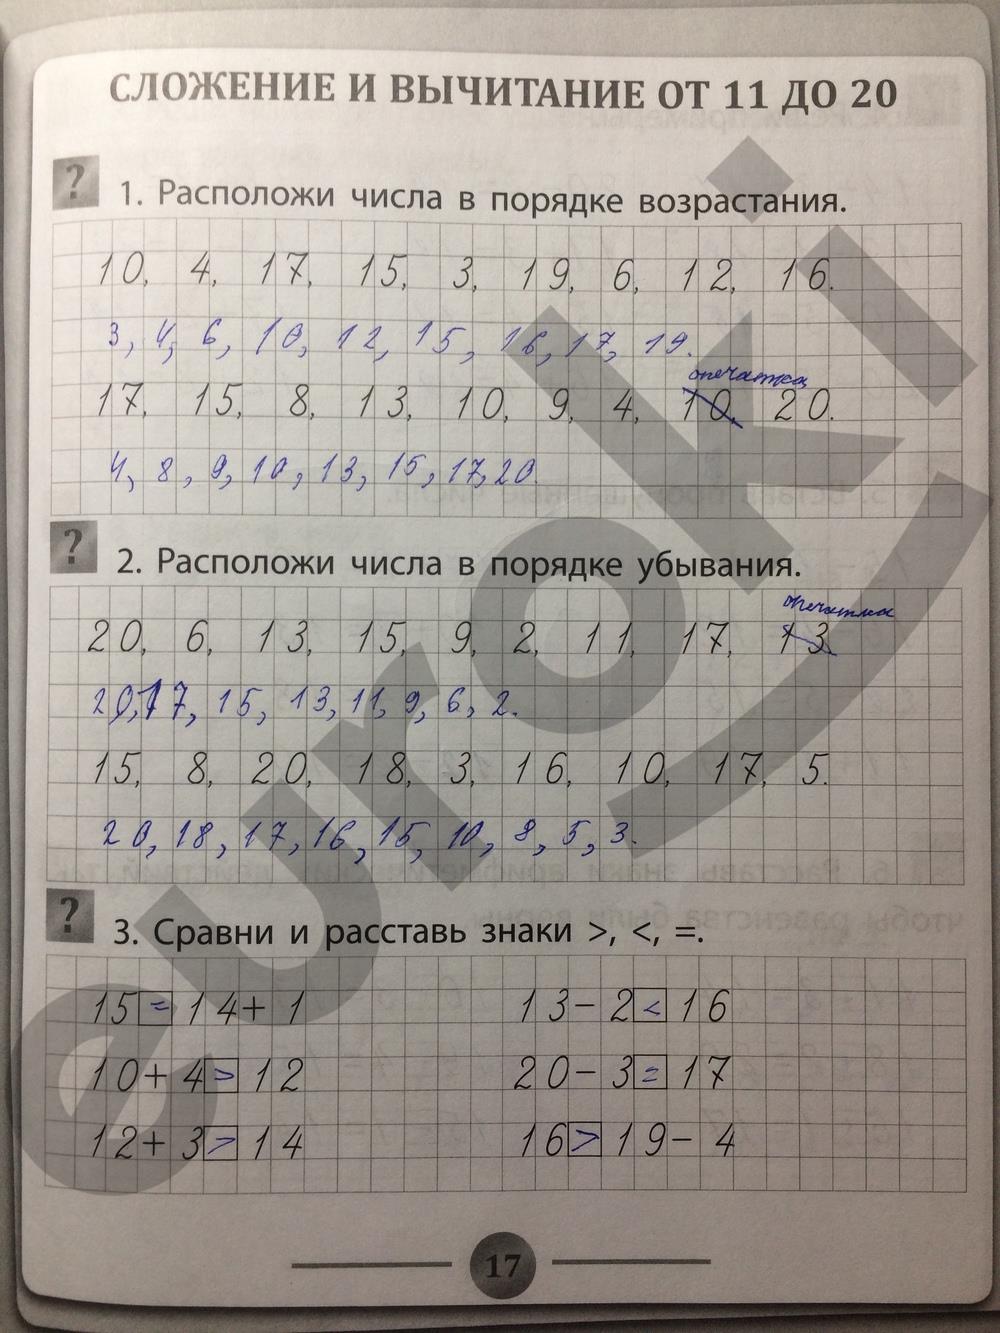 СЛОЖЕНИЕ И ВЫЧИТАНИЕ ОТ 11 ДО 20
? 1. Расположи числа в порядке возрастания.
10, 4, 17, 15, 3, 19, 6, 12, 16.
3, 4, 6, 10, 12, 15, 16, 17, 19.
опечатка
17, 15, 8, 13, 10, 9, 4, 10, 20.
4, 8, 9, 10, 13, 15, 17, 20.
? 2. Расположи числа в порядке убывания.
опечатка
20, 6, 13, 15, 9, 2, 11, 17, 13.
20, 17, 15, 13, 11, 9, 6, 2.
15, 8, 20, 18, 3, 16, 10, 17, 5.
20, 18, 17, 16, 15, 10, 8, 5, 3.
? 3. Сравни и расставь знаки >, <, =.
15 = 14 + 1 13 - 2 < 16
10 + 4 > 12 20 - 3 = 17
12 + 3 > 14 16 > 19 - 4
17
euroki